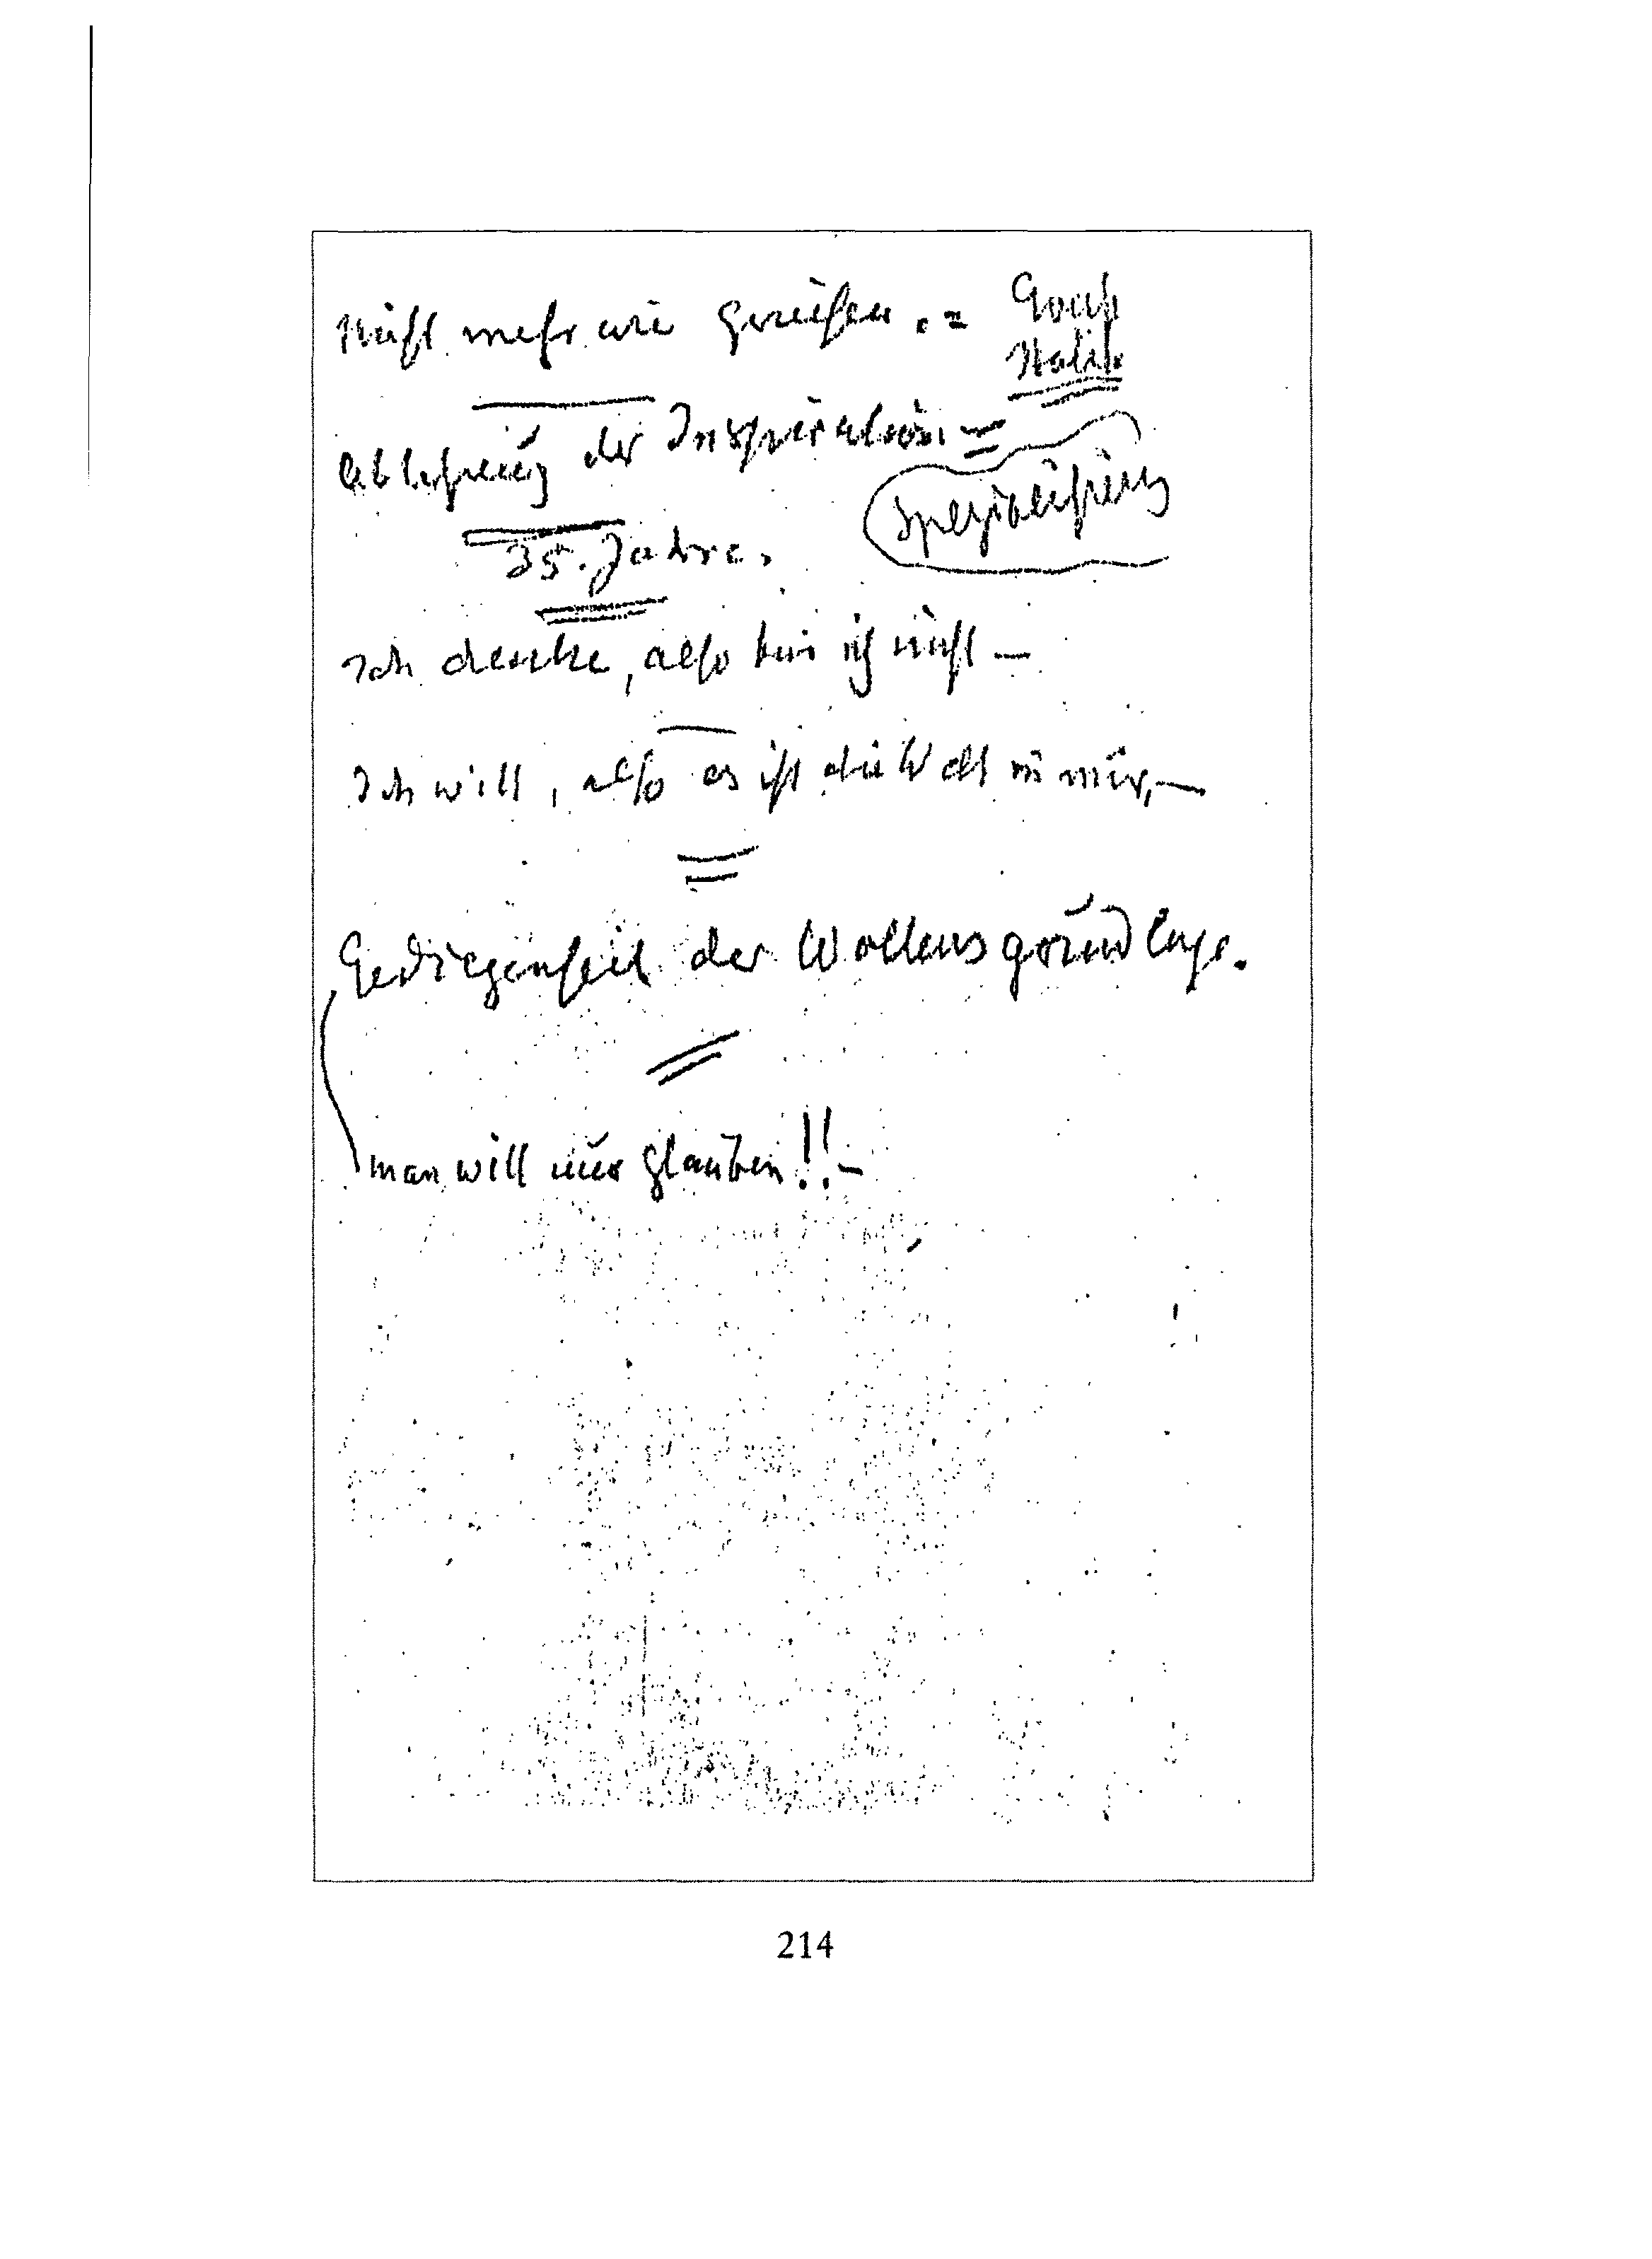 Nicht mehr wie Griechen. =
Ablehnung der Inspiration =
Spezialisierung
35. Jahre.
Ich denke, also bin ich nicht –
Ich will, also es ist die Welt in mir, –
Gediegenheit der Wollensgrundlage.
man will nur glauben!! –
214